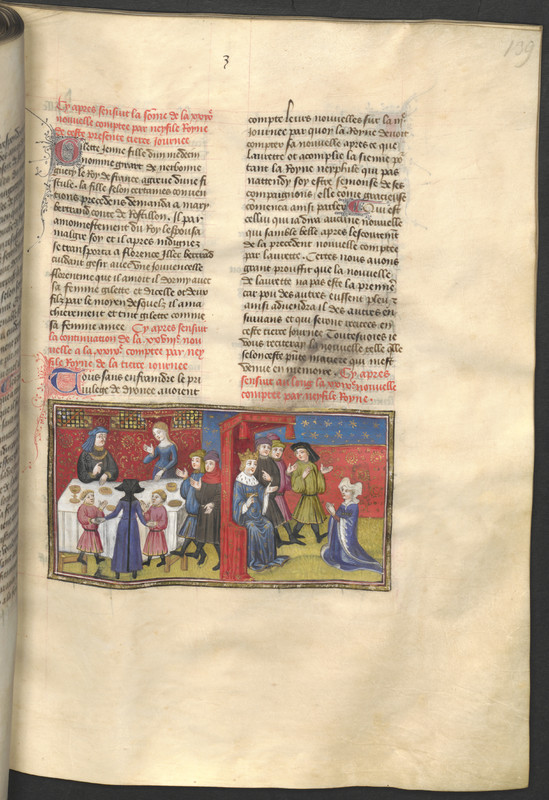 3
139
Cy apres sensuit la some de la xxixe
nouvelle comptee par neyfile Royne
de ceste presente tierce journee
lette jenne fille dun medecin
nomme girart de nerbonne
guery le Roy de france agreue dune fi
stule. la fille selon certaines conuen
tions precedens demanda a mary
bertrand conte de Rosillon. Il par
amonnestement du Roy lespousa
malgre soy et il apres indignez
se transporta a florence Illec bertrand
cuidant gesir auec une jouuencelle
florentine que il amoit il dormy auec
sa femme gilette et dicelle ot deux
filz par le moyen desquelz il ama
chierement et tint gilette comme
sa femme amee Cy apres sensuit
la continuation de la nou
uelle a la xxixe comptee par ney
file Royne de la tierce journee
Tous sans enfraindre le pri
uilege de dyonee auoient
compte leurs nouuelles sur la
journee par quoy la Royne deuoit
compter sa nouuelle apres ce que
laurette ot acomplie la sienne po
tant la Royne neyphile qui pas
nattendy soy estre semonse de ses
compaignons elle toute gracieuse
comenca ainsi parler Qui est
cellui qui ia dira aucune nouuelle
qui samble belle apres lescouteme
de la precedent nouuelle comptee
par laurette. Certes nous auons
grant prouffit que la nouuelle
de laurette na pas este la premiere
car pou des autres eussent pleu
ainsi aduendra il des autres en
suiuans et qui seront traictees en
ceste tierce journee Toutesuoies ie
vous reciteray la nouuelle telle que
selon ceste pute matiere qui mest
venue en memoire. Cy apres
sensuit au long la xxixe nouuelle
comptee par neyfile Royne.